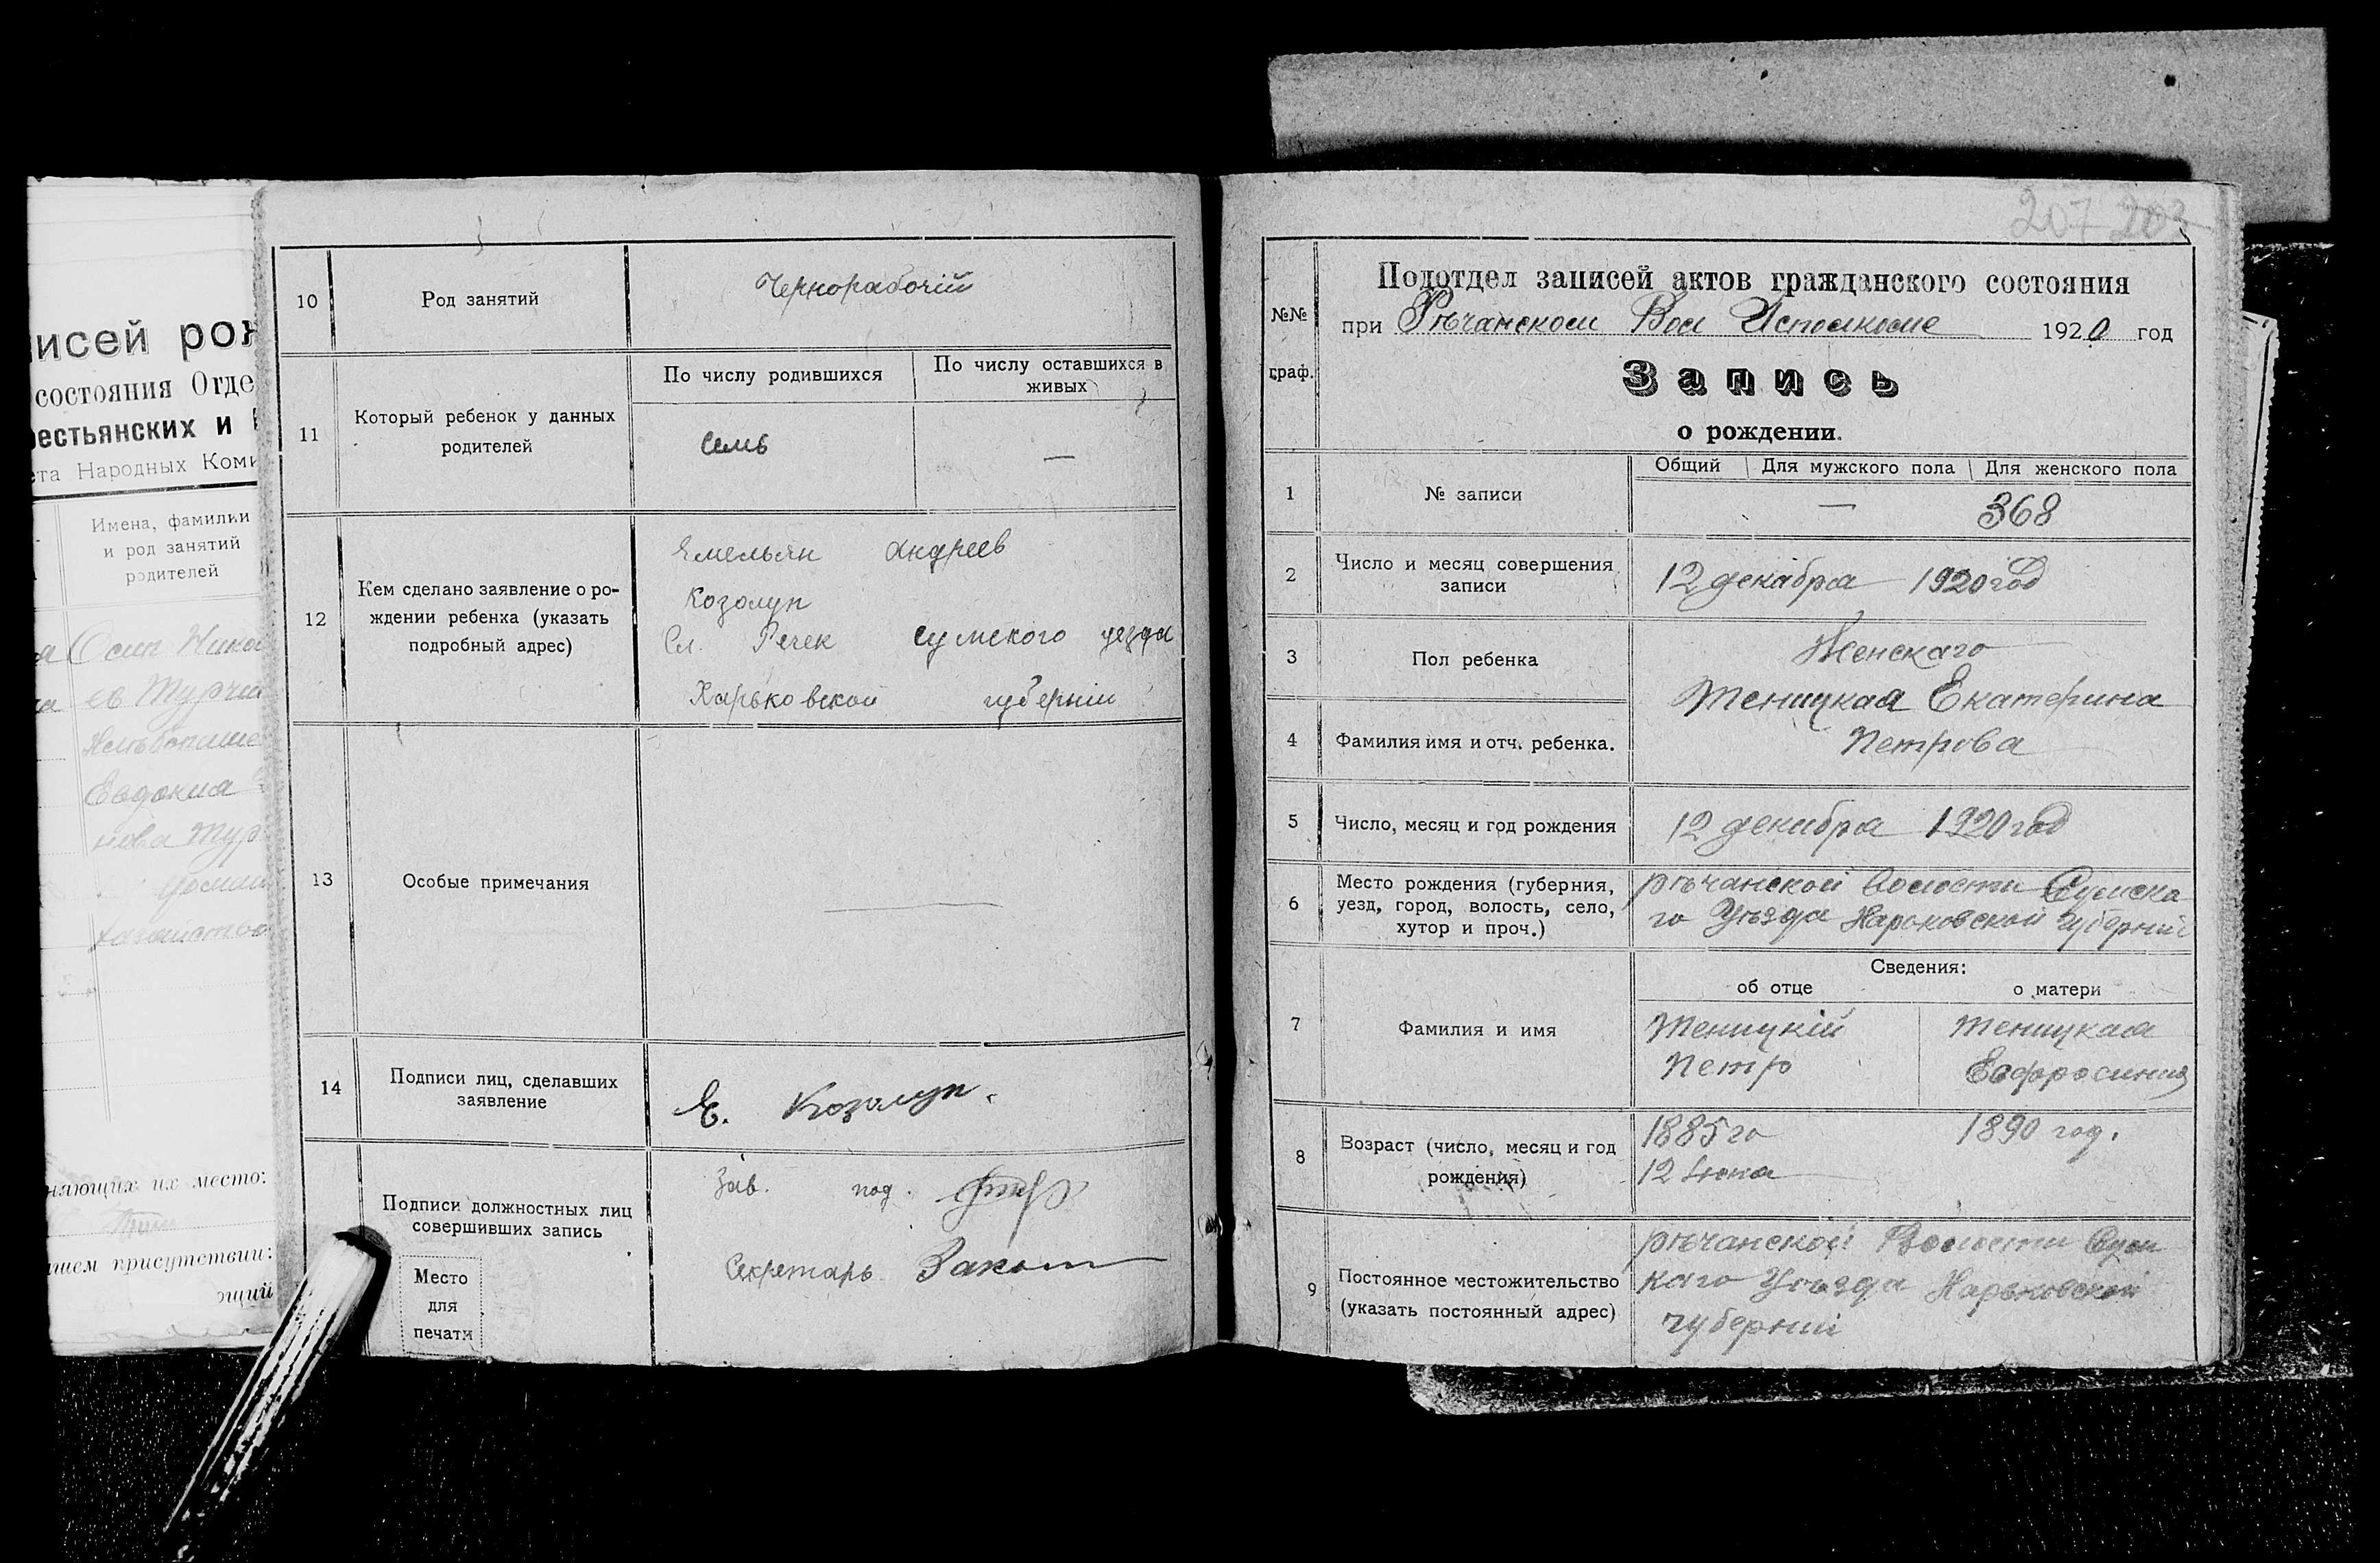 исей рож
состояния Отде
рестьянских и
ета Народных Коми
Имена, фамилии
и род занятий
родителей
Осип Никол
ев Турчи
Евдокиа
нова Тур
няющих их место:
шем присутствии:
ющий
10
Род занятий
Чернорабочій
11
Который ребенок у данных
родителей
По числу родившихся
По числу оставшихся в
живых
семь
—
12
Кем сделано заявление о ро-
ждении ребенка (указать
подробный адрес)
Емельян Андреев
Козолуп
Сл. Речек Сумского уезда
Харьковской губерніи
13
Особые примечания
14
Подписи лиц, сделавших
заявление
Е. Козолуп.
Подписи должностных лиц
совершивших запись
Зав. под.
Секретарь
Место
для
печати
207 203
№№
граф.
Подотдел записей актов гражданского состояния
при Рѣчанском Вол Исполкоме 1920 год
Запись
о рождении.
1
№ записи
Общий Для мужского пола Для женского пола
— 368
2
Число и месяц совершения
записи
12 декабра 1920 год
3
Пол ребенка
Женскаго
4
Фамилия имя и отч. ребенка.
Теницкая Екатерина
Петрова
5
Число, месяц и год рождения
12 декабра 1920 год
6
Место рождения (губерния,
уезд, город, волость, село,
хутор и проч.)
рѣчанской Волости Сумска
го Уѣзда Харковской Губерний
7
Фамилия и имя
Сведения:
об отце
о матери
Теницкій
Петр
Теницкая
Евфросиния
8
Возраст (число, месяц и год
рождения)
1885 го
12 Июна
1890 год.
9
Постоянное местожительство
(указать постоянный адрес)
рѣчанской Волости Сум
каго Уѣзда Харьковской
губерний